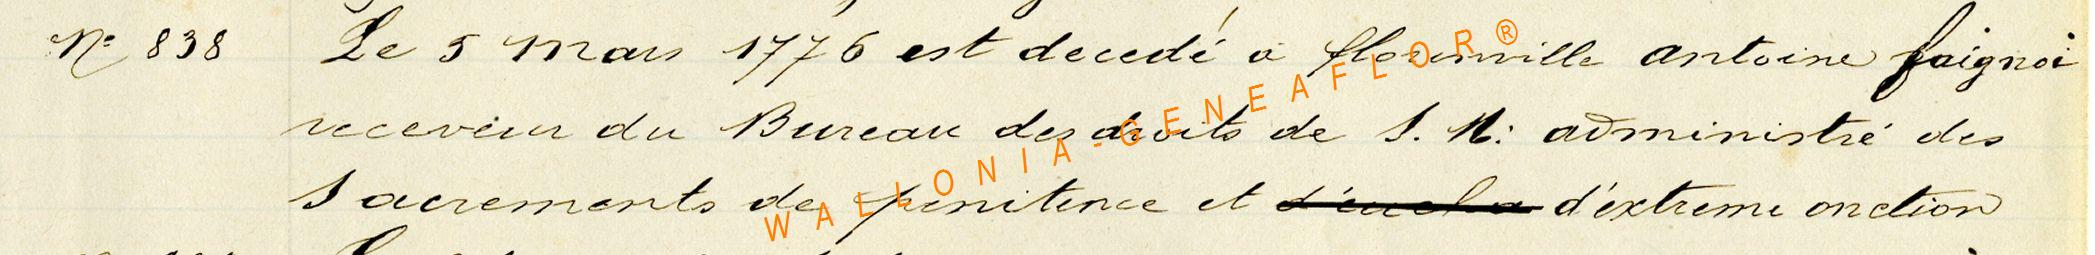 N° 838 Le 5 Mars 1776 est decedé a florenville antoine faignoi
receveur du Bureau des droits de S. M: administré des
Sacrements de penitence et d'extreme onction
WALLONIA-GENEAFLOR®